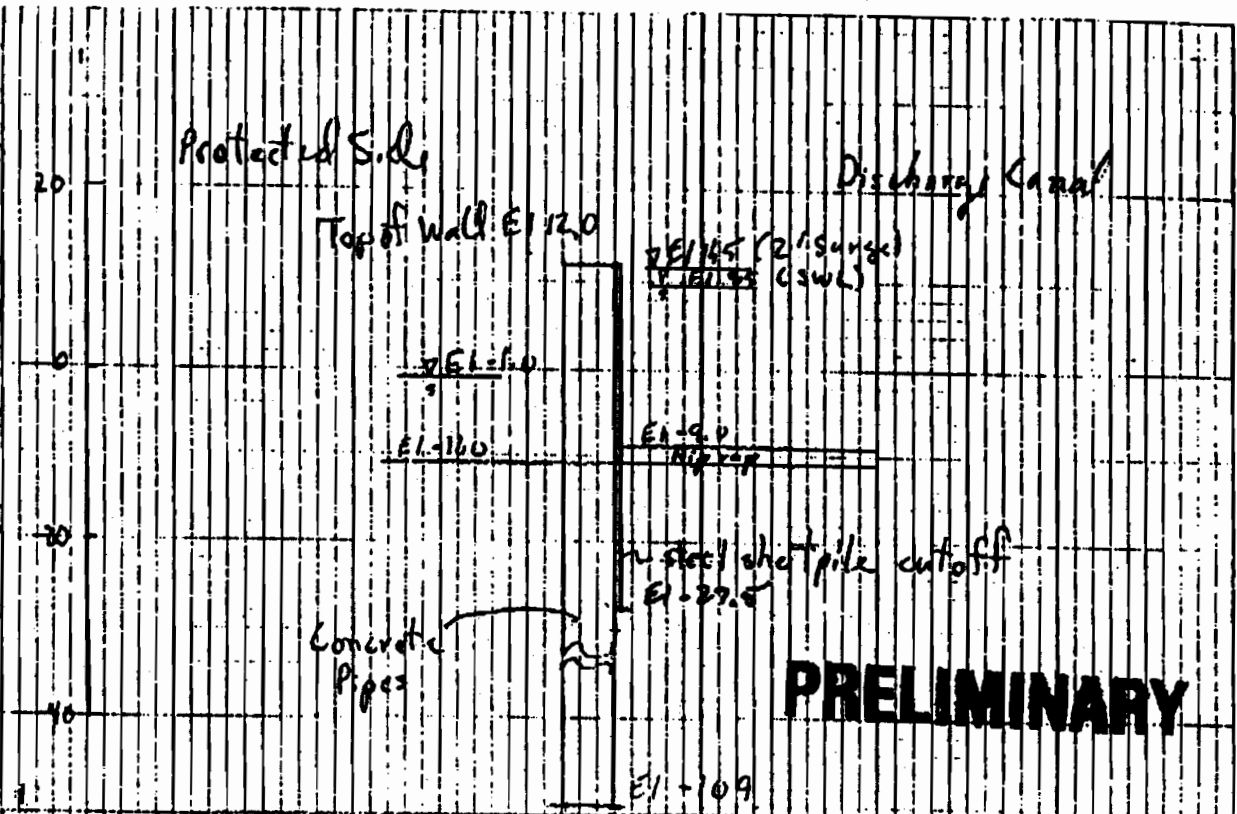 Protected Side
Discharge Canal
20
Top of Wall El 12.0
(2' Surge)
(SWL)
0
El -1.0
El -9.0
Riprap
steel sheetpile cutoff
El -27.5
Concrete
Pipes
PRELIMINARY
40
El -109